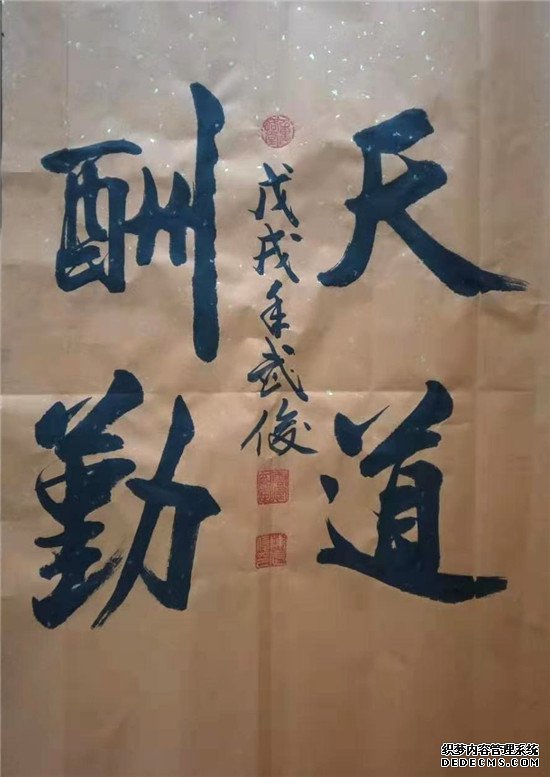 天道
酬勤
戊戌年武俊
织梦内容管理系统
DEDECMS.COM